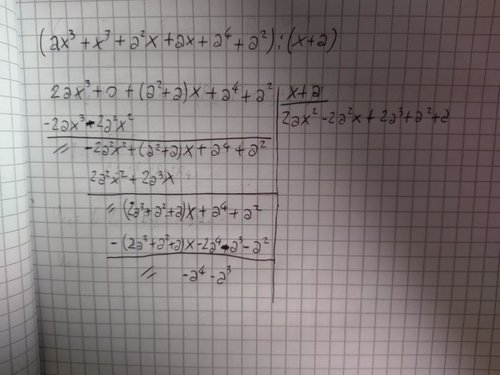 (ax³ + x³ + a²x + ax + a⁴ + a²) : (x+a)
2ax³ + 0 + (a²+a)x + a⁴ + a² | x+a
-2ax³ - 2a²x² | 2ax² - 2a²x + 2a³ + a² + a
// -2a²x² + (a²+a)x + a⁴ + a²
2a²x² + 2a³x
// (2a³+a²+a)x + a⁴ + a²
-(2a³+a²+a)x - 2a⁴ - a³ - a²
// -a⁴ - a³